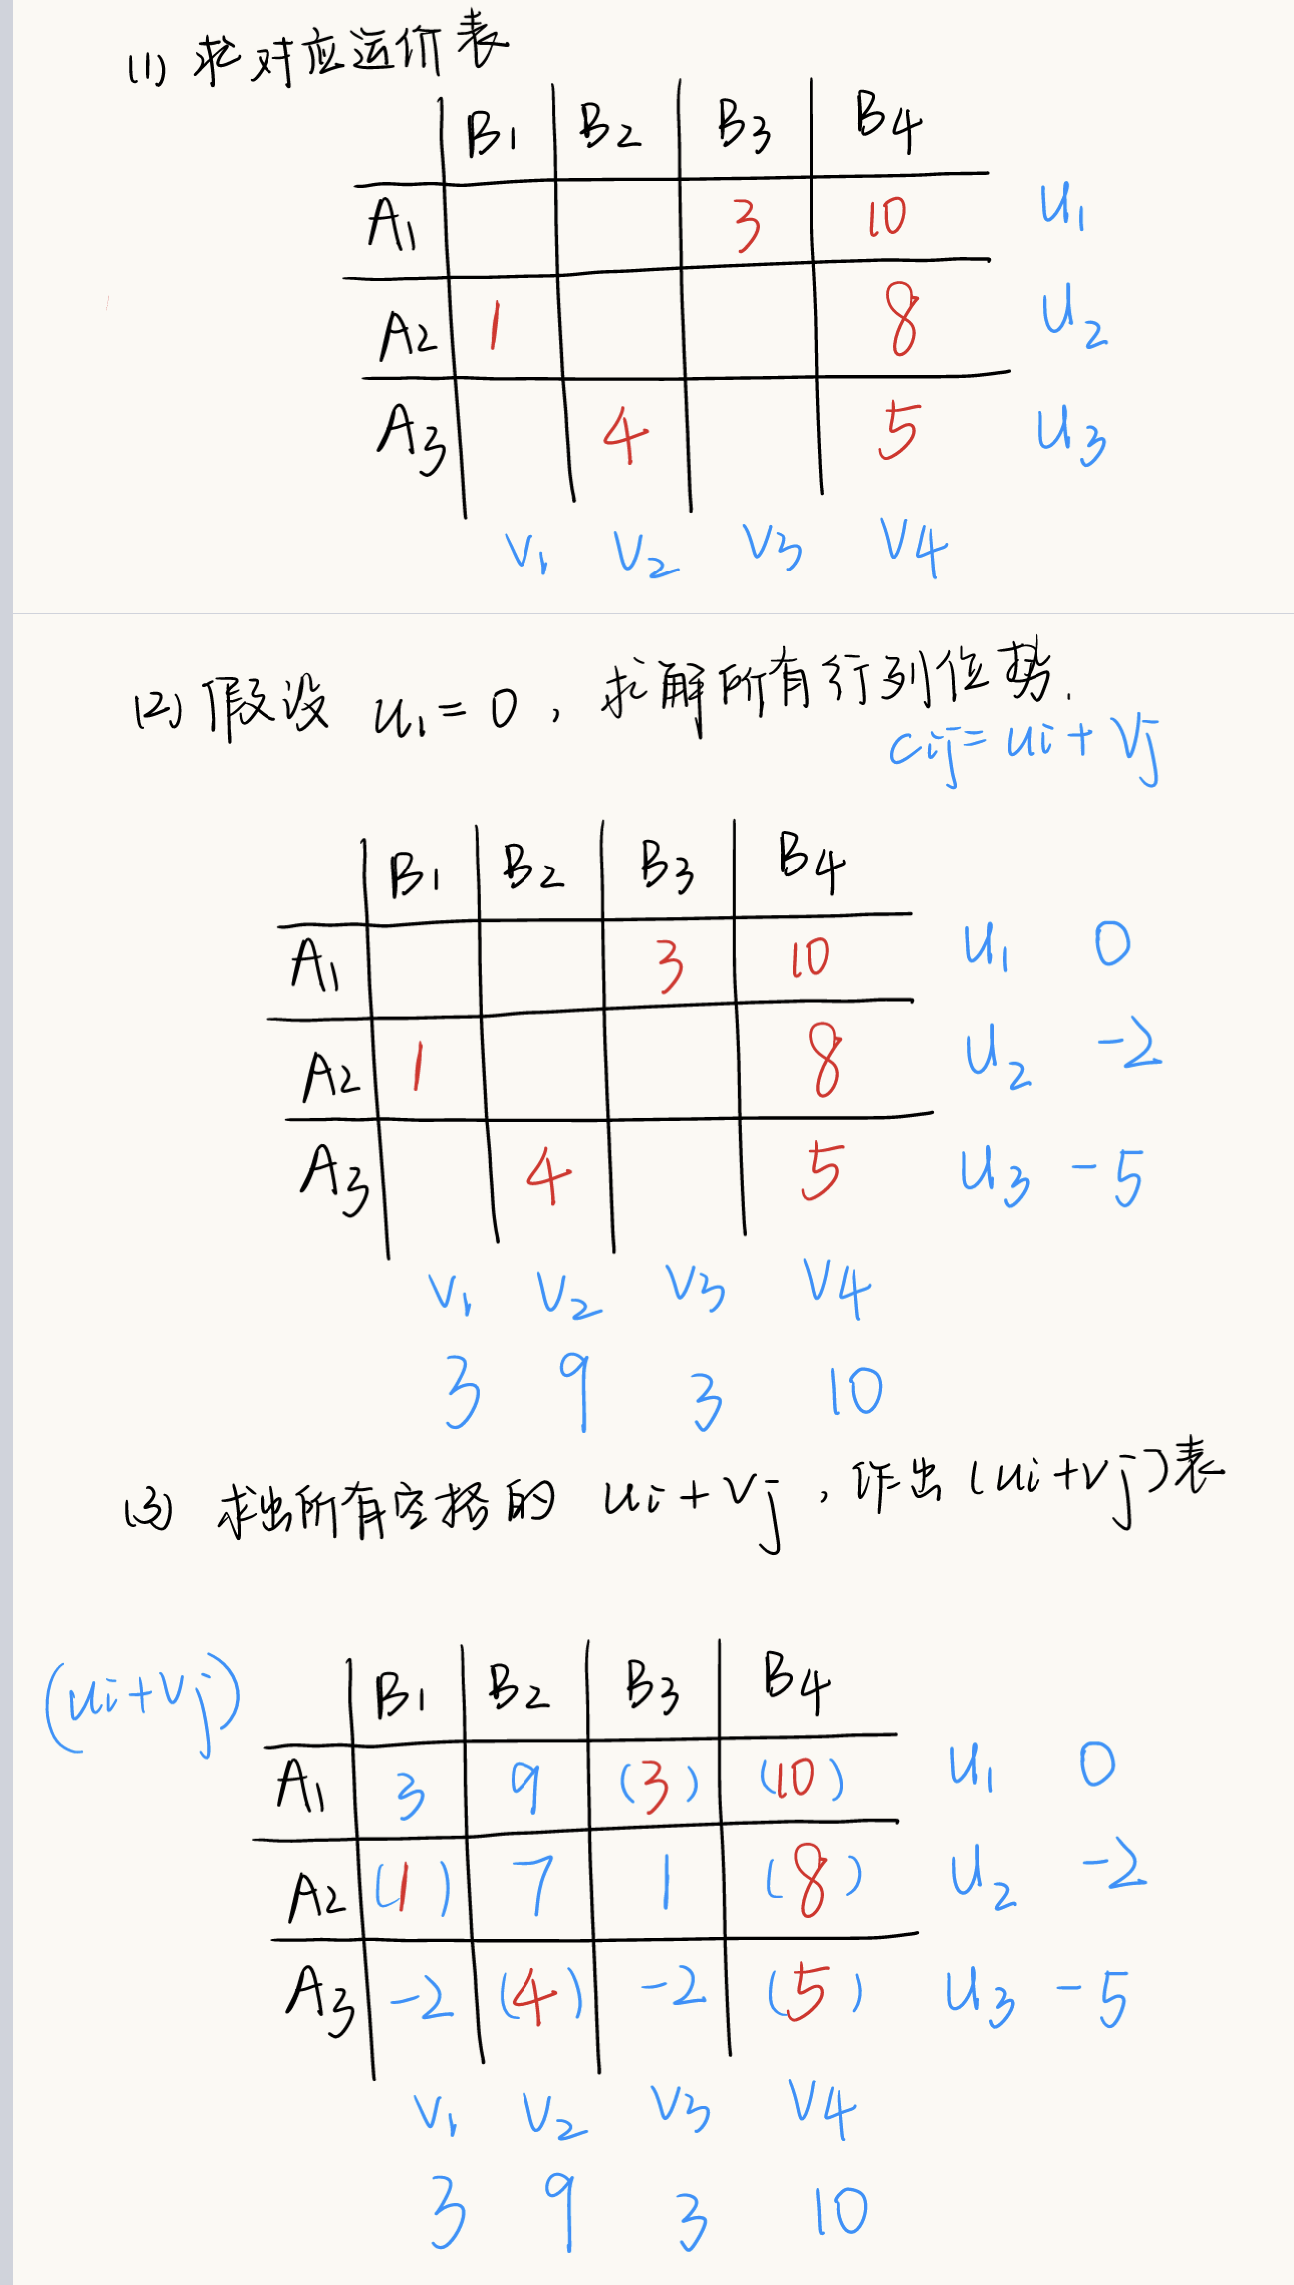 (1) 求对应运价表
B1 B2 B3 B4
A1 3 10 u1
A2 1 8 u2
A3 4 5 u3
v1 v2 v3 v4
(2) 假设 u1=0, 求解所有行列位势.
cij=ui+vj
B1 B2 B3 B4
A1 3 10 u1 0
A2 1 8 u2 -2
A3 4 5 u3 -5
v1 v2 v3 v4
3 9 3 10
(3) 求出所有空格的 ui+vj, 作出(ui+vj)表
(ui+vj) B1 B2 B3 B4
A1 3 9 (3) (10) u1 0
A2 (1) 7 1 (8) u2 -2
A3 -2 (4) -2 (5) u3 -5
v1 v2 v3 v4
3 9 3 10